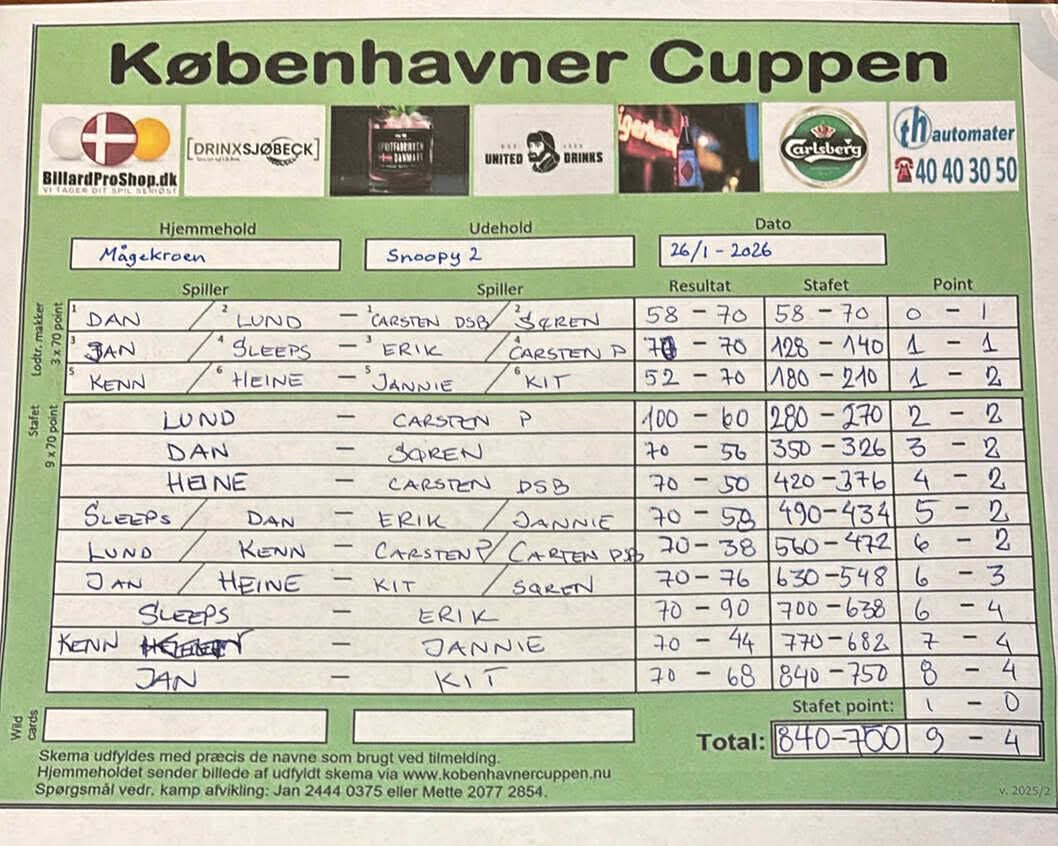 Københavner Cuppen
BillardProShop.dk
VI TAGER DIT SPIL SERIØST
[DRINXSJØBECK]
SPRITFABRIKKEN DANMARK
UNITED DRINKS
Carlsberg
th automater
☎40 40 30 50
Hjemmehold Udehold Dato
Mågekroen Snoopy 2 26/1-2026
Spiller Spiller Resultat Stafet Point
Lodtr. makker
3 x 70 point
1 DAN / 2 LUND - 1 CARSTEN DSB / 2 SØREN 58 - 70 58 - 70 0 - 1
3 JAN / 4 SLEEPS - 3 ERIK / 4 CARSTEN P 70 - 70 128 - 140 1 - 1
5 KENN / 6 HEINE - 5 JANNIE / 6 KIT 52 - 70 180 - 210 1 - 2
Stafet
9 x 70 point
LUND - CARSTEN P 100 - 60 280 - 270 2 - 2
DAN - SØREN 70 - 56 350 - 326 3 - 2
HEINE - CARSTEN DSB 70 - 50 420 - 376 4 - 2
SLEEPS / DAN - ERIK / JANNIE 70 - 58 490 - 434 5 - 2
LUND / KENN - CARSTEN P / CARTEN DSB 70 - 38 560 - 472 6 - 2
JAN / HEINE - KIT / SØREN 70 - 76 630 - 548 6 - 3
SLEEPS - ERIK 70 - 90 700 - 638 6 - 4
KENN - JANNIE 70 - 44 770 - 682 7 - 4
JAN - KIT 70 - 68 840 - 750 8 - 4
Stafet point: 1 - 0
Wild cards
Total: 840-750 9 - 4
Skema udfyldes med præcis de navne som brugt ved tilmelding.
Hjemmeholdet sender billede af udfyldt skema via www.kobenhavnercuppen.nu
Spørgsmål vedr. kamp afvikling: Jan 2444 0375 eller Mette 2077 2854.
v. 2025/2